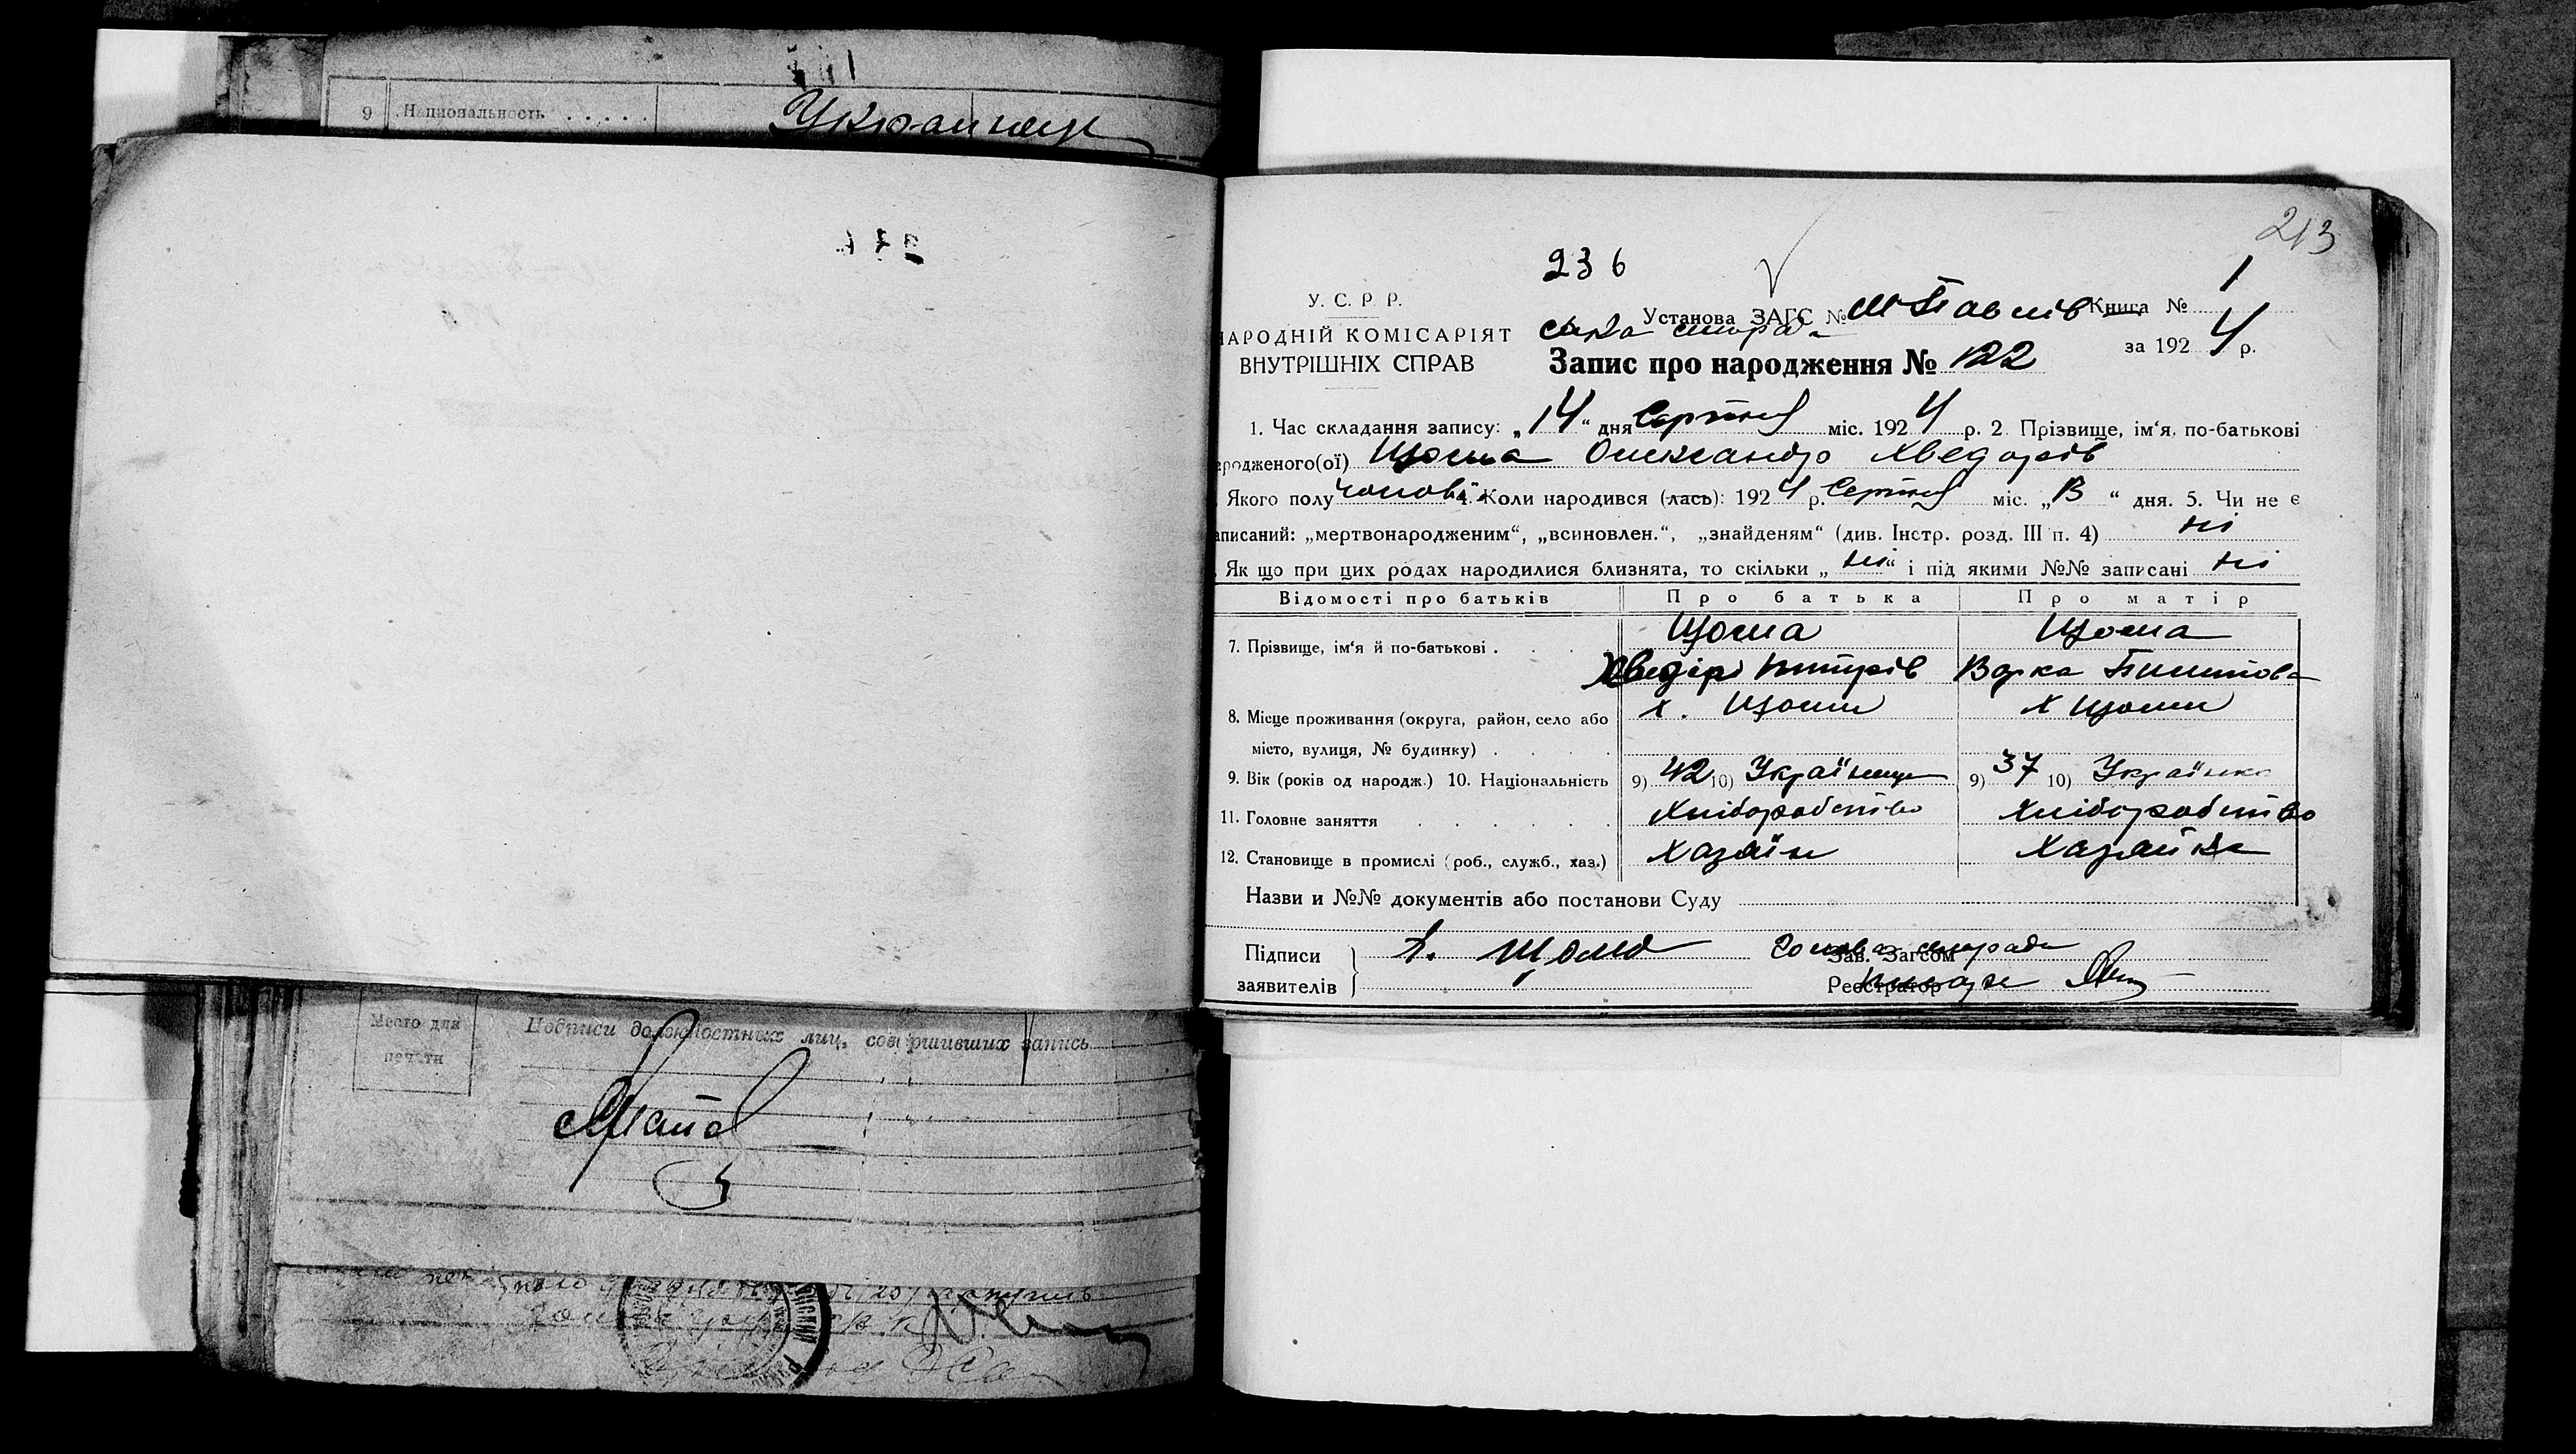 9 Национальность . . . . . Украинец
213
236
У. С. Р. Р.
Установа ЗАГС № Книга № 1
НАРОДНІЙ КОМІСАРІЯТ
за 1924 р.
ВНУТРІШНІХ СПРАВ
Запис про народження № 122
1. Час складання запису: „14“ дня Серпня міс. 1924 р. 2. Прізвище, ім‘я, по-батькові
родженого(ої) Щома Олександр Хведорів
Якого полу чолові 4. Коли народився (лась): 1924 р. Серпня міс. „13“ дня. 5. Чи не є
аписаний: „мертвонародженим“, „всиновлен.“, „знайденям“ (див. Інстр. розд. III п. 4) ні
Як що при цих родах народилися близнята, то скільки „ні“ і під якими №№ записані ні
Відомості про батьків Про батька Про матір
Щома Щома
7. Прізвище, ім‘я й по-батькові . . .
Хведір Петрів Варка
8. Місце проживання (округа, район, село або х. Щоми х Щоми
місто, вулиця, № будинку) . . . .
9. Вік (років од народж.) 10. Національність 9) 42 10) Українець 9) 37 10) Українка
11. Головне заняття . . . . . . Хліборобство Хліборобство
12. Становище в промислі (роб., служб., хаз.) Хазяїн Хазяйка
Назви и №№ документів або постанови Суду
Підписи Щома Голова сільради
Зав. Загсом
заявителів Реєстратор
Место для
печати
Подписи должностных лиц, совершивших запись